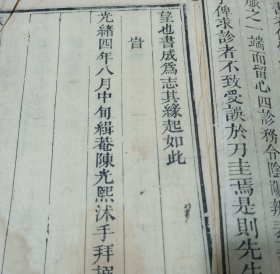 脈之一端而留心四診務令陰陽
俾求診者不致受誤於刀圭焉是則先生
望也書成爲志其緣起如此
旹
光緒四年八月中旬緝菴陳光熙沐手拜撰